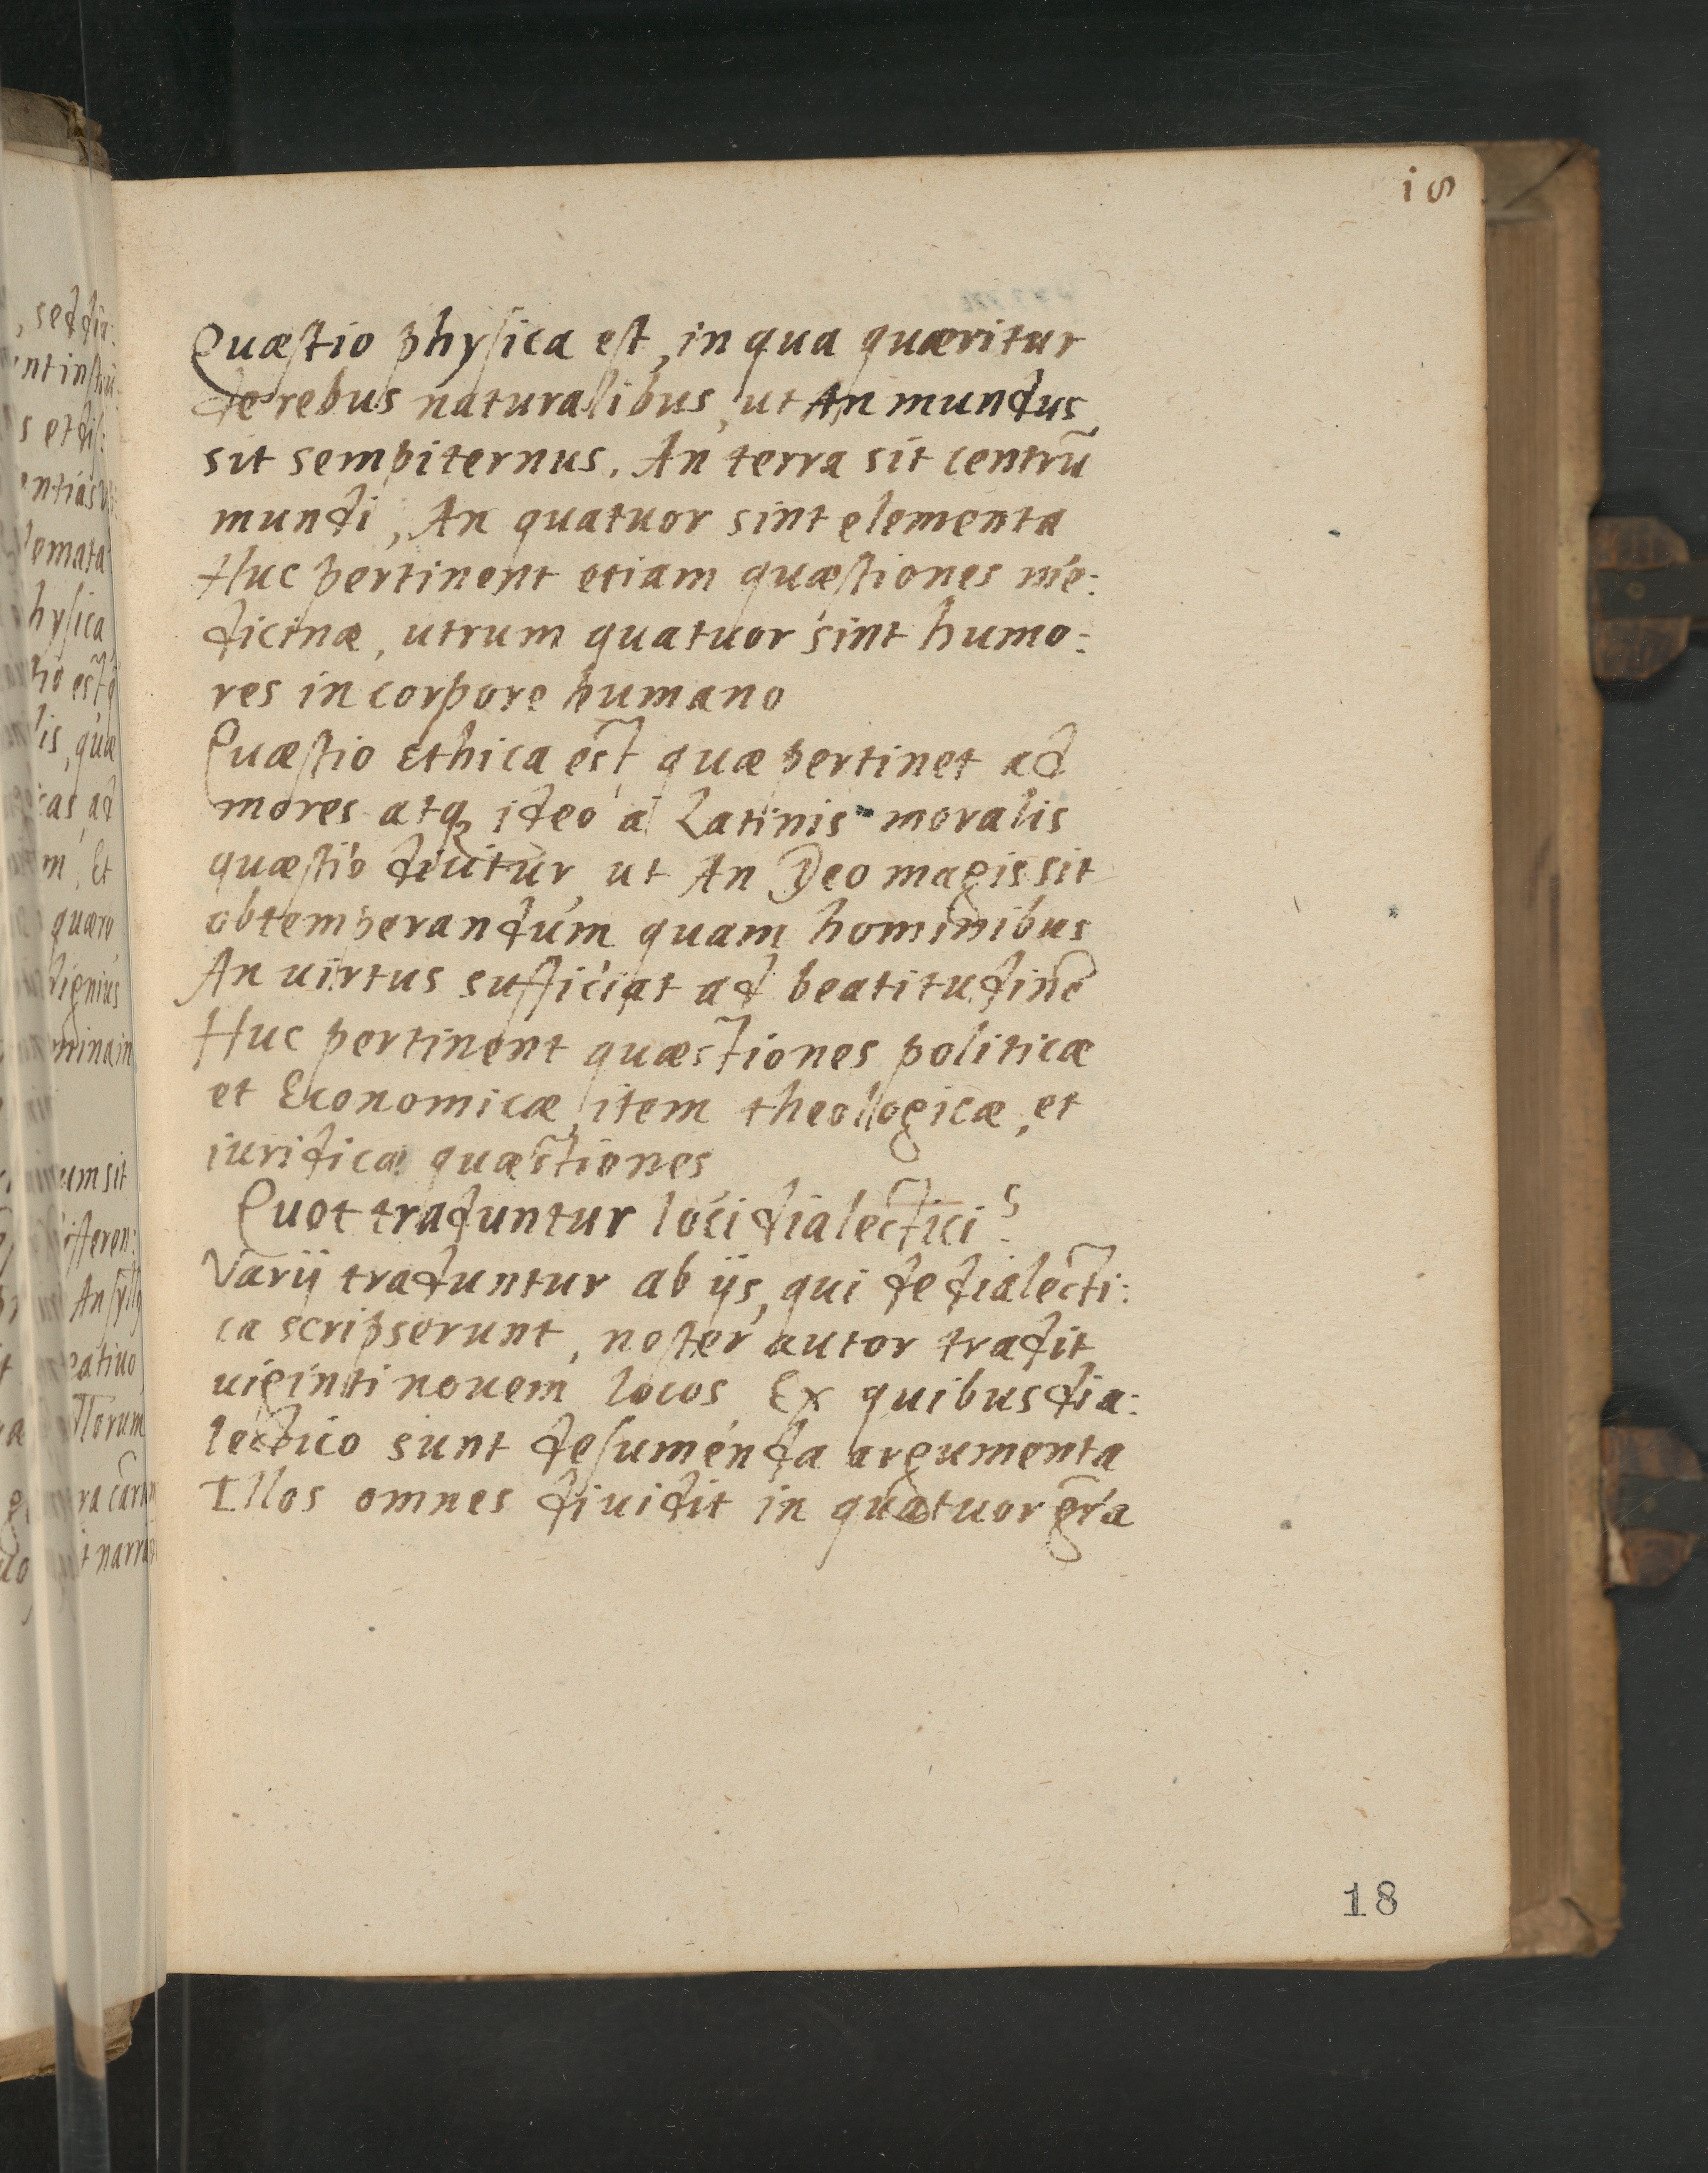 18
Quæstio physica est, in qua quæritur
de rebus naturalibus, ut An mundus
sit sempiternus. An terra sit centrū
mundi, An quatuor sint elementa
Huc pertinent etiam quæstiones me:
dicinæ, utrum quatuor sint humo:
res in corpore humano
Quæstio Ethica est quæ pertinet ad
mores atq ideo a Latinis moralis
quæstio dicitur, ut An Deo magis sit
obtemperandum quam hominibus
An uirtus sufficiat ad beatitudinē
Huc pertinent quæstiones politicæ
et Economicæ, item theologicæ, et
iuridicæ quæstiones
Quot traduntur loci dialectici?
Varij traduntur ab ijs, qui de dialecti:
ca scripserunt, noster autor tradit
uiginti nouem locos, Ex quibus dia:
lectico sunt desumenda argumenta
Illos omnes diuidit in quatuor gr̄a
18